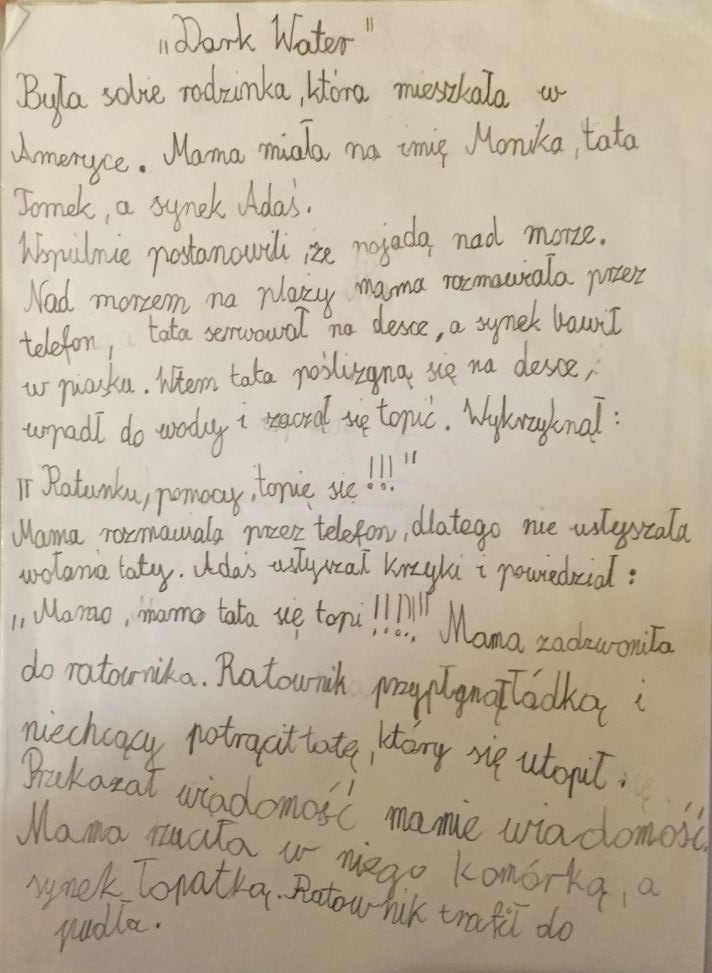 "Dark Water"
Była sobie rodzinka, która mieszkała w
Ameryce. Mama miała na imię Monika, tata
Tomek, a synek Adaś.
Wspulnie postanowili, że pojadą nad morze.
Nad morzem na plaży mama rozmawiała przez
telefon, tata serwował na desce, a synek bawił
w piasku. Wtem tata poślizgną się na desce,
wpadł do wody i zaczął się topić. Wykrzyknął:
"Ratunku, pomocy, topię się!!!"
Mama rozmawiała przez telefon, dlatego nie usłyszała
wołania taty. Adaś usłyszał krzyki i powiedział:
"Mamo, mamo tata się topi!!!!!" Mama zadzwoniła
do ratownika. Ratownik przypłynął łódką i
niechcący potrącił tatę, który się utopił.
Przekazał wiadomość mamie wiadomość.
Mama rzuciła w niego komórką, a
synek łopatką. Ratownik trafił do
pudła.